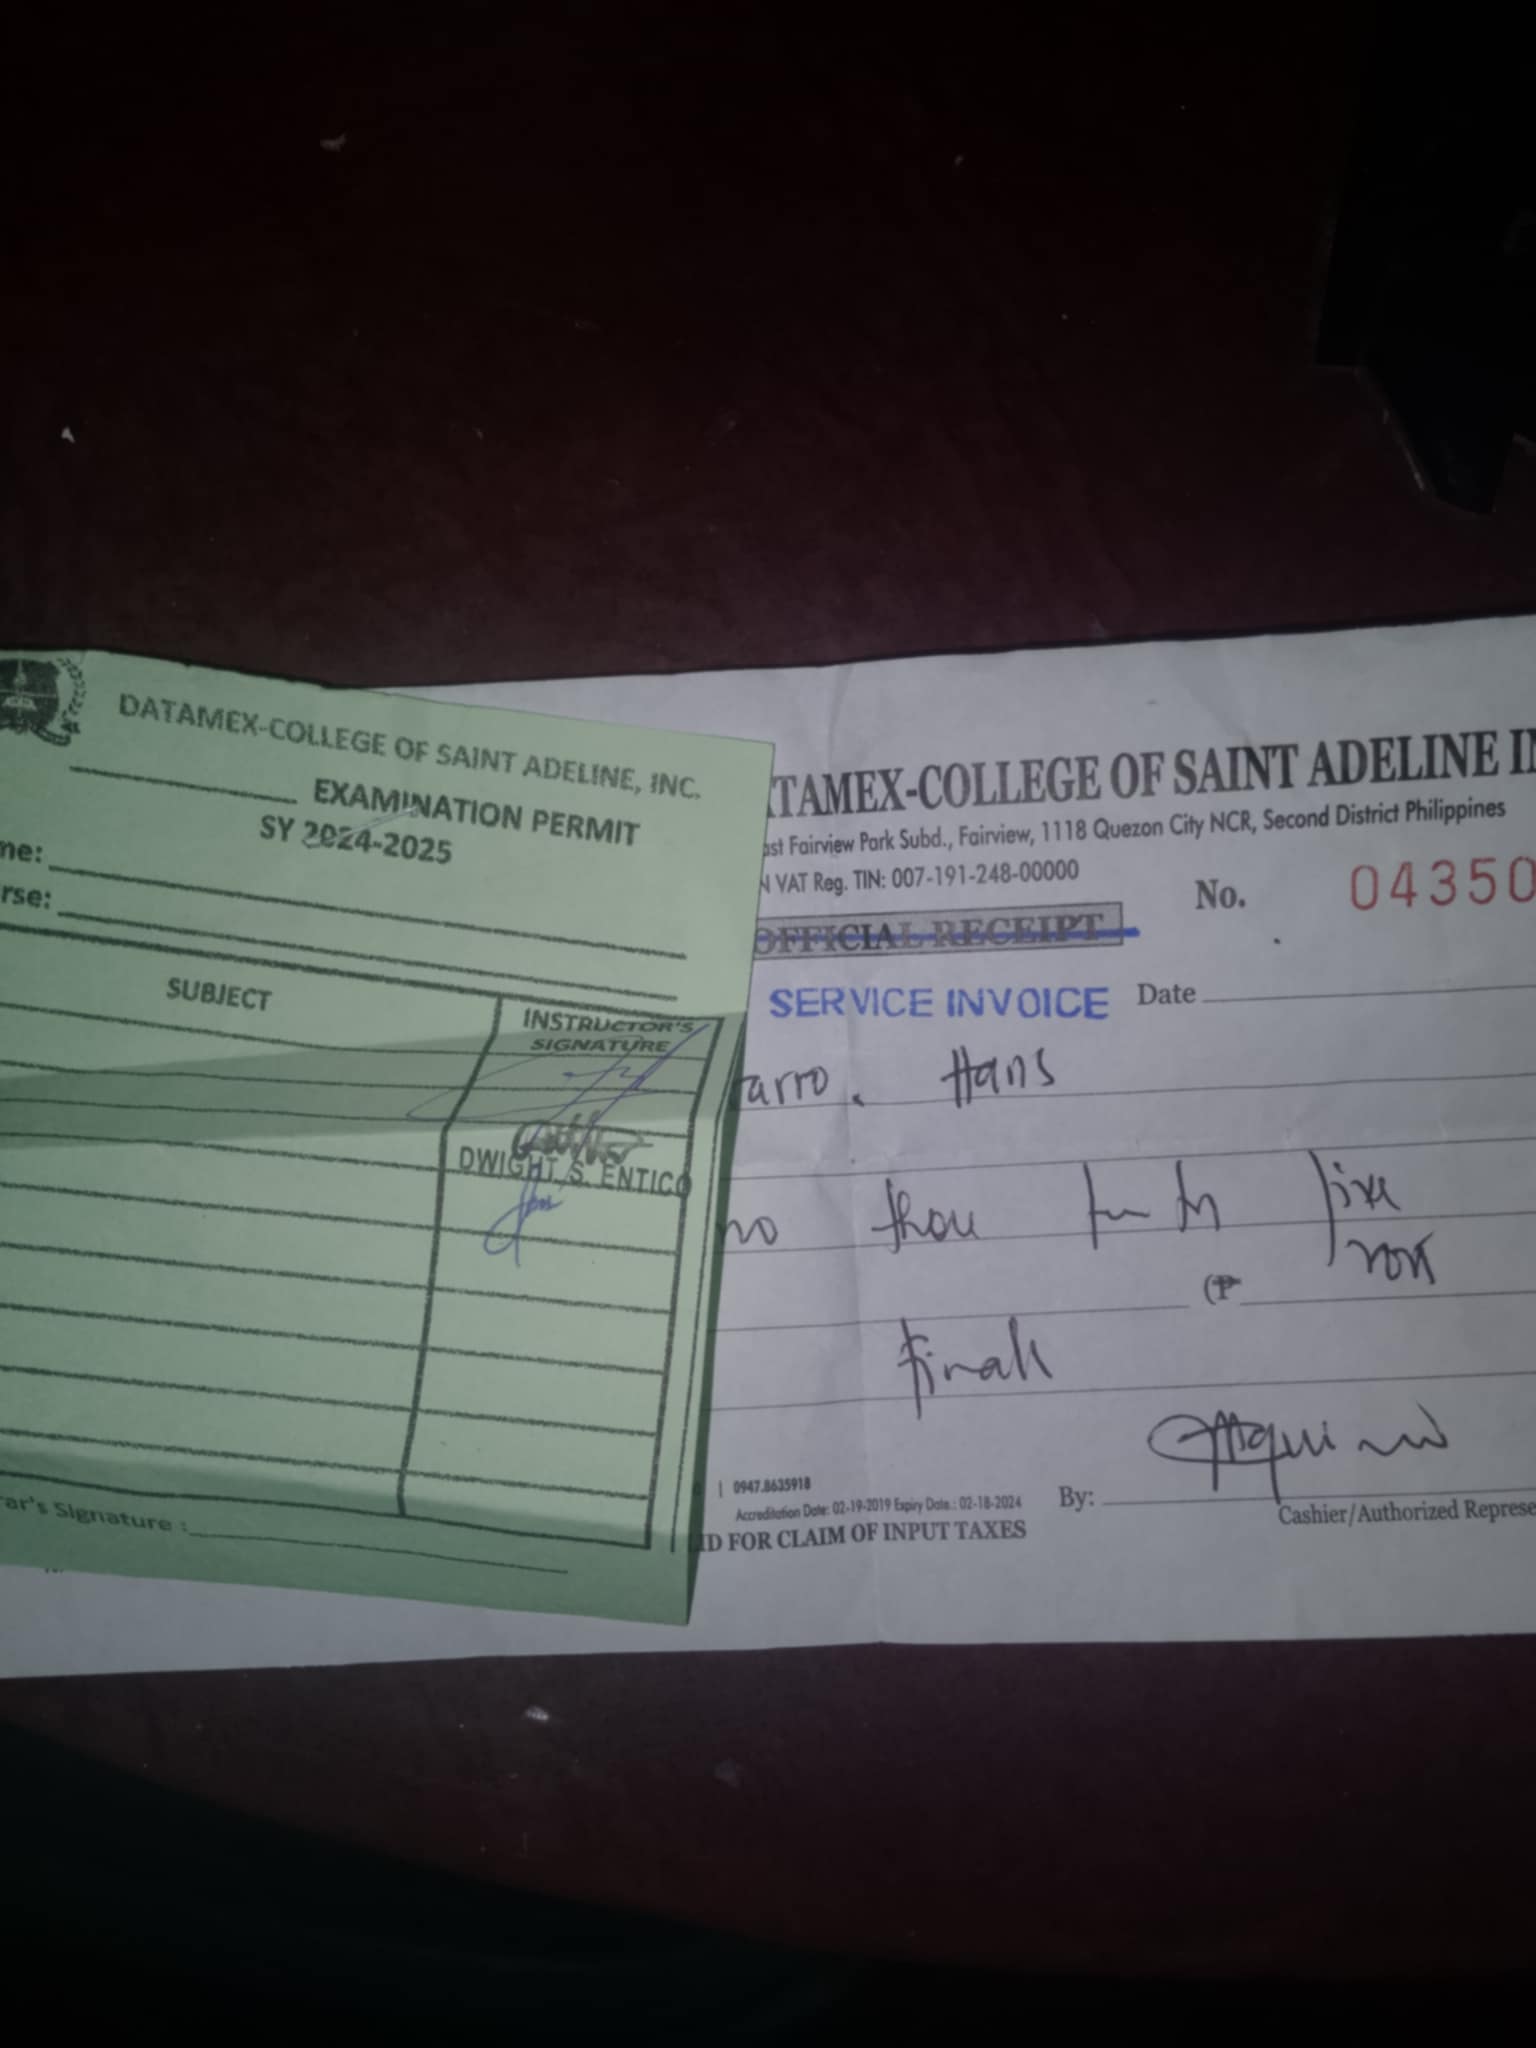 DATAMEX-COLLEGE OF SAINT ADELINE, INC.
EXAMINATION PERMIT
SY 2024-2025
me:
rse:
SUBJECT
INSTRUCTOR'S
SIGNATURE
DWIGHT S. ENTICO
ar's Signature :
TAMEX-COLLEGE OF SAINT ADELINE IN
ast Fairview Park Subd., Fairview, 1118 Quezon City NCR, Second District Philippines
N VAT Reg. TIN: 007-191-248-00000
No. 04350
OFFICIAL RECEIPT
SERVICE INVOICE
Date
arro. Hans
no thou five
(₱
Finals
| 0947.8635918
Accreditation Date: 02-19-2019 Expiry Date.: 02-18-2024
ID FOR CLAIM OF INPUT TAXES
By:
Cashier/Authorized Represe